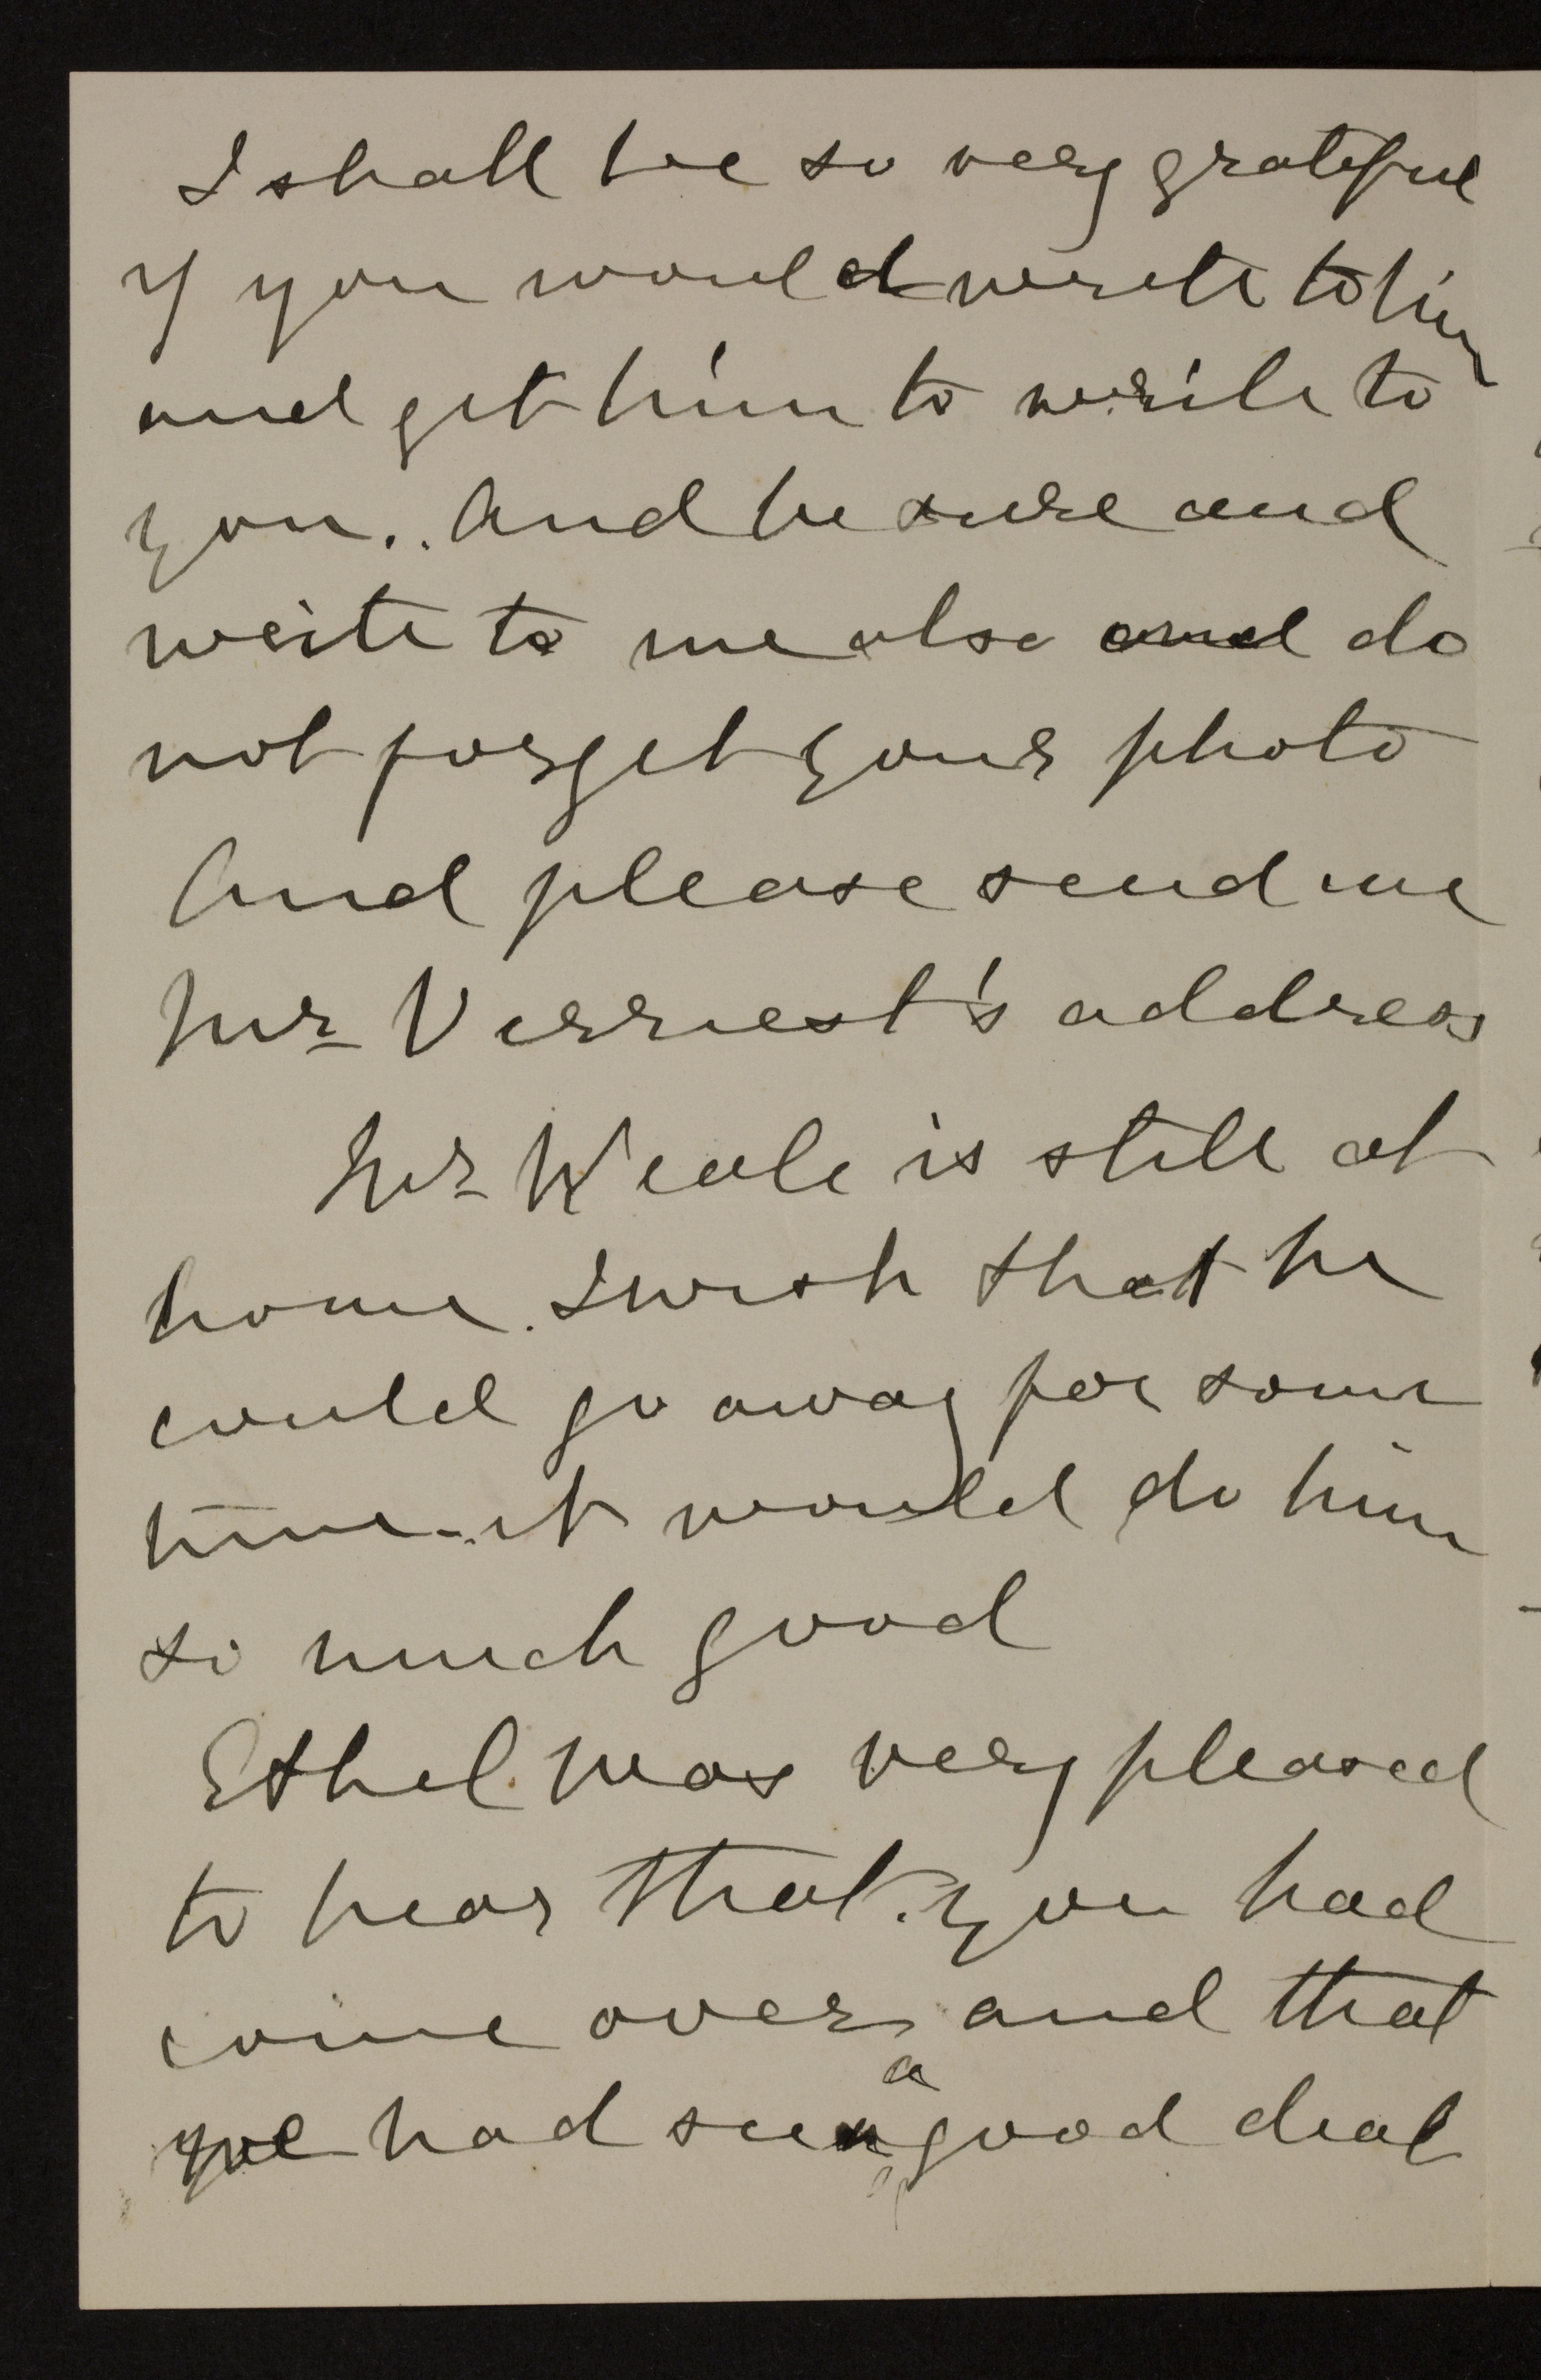 I shall be so very grateful
if you would write to him
and get him to write to
you.. And be sure and
write to me also and do
not forget your photo
And please send me
Mr Verriest's address
Mr Weale is still at
home. I wish that he
could go away for some
time - it would do him
so much good
Ethel was very pleased
to hear that you had
come over, and that
we had seen a good deal